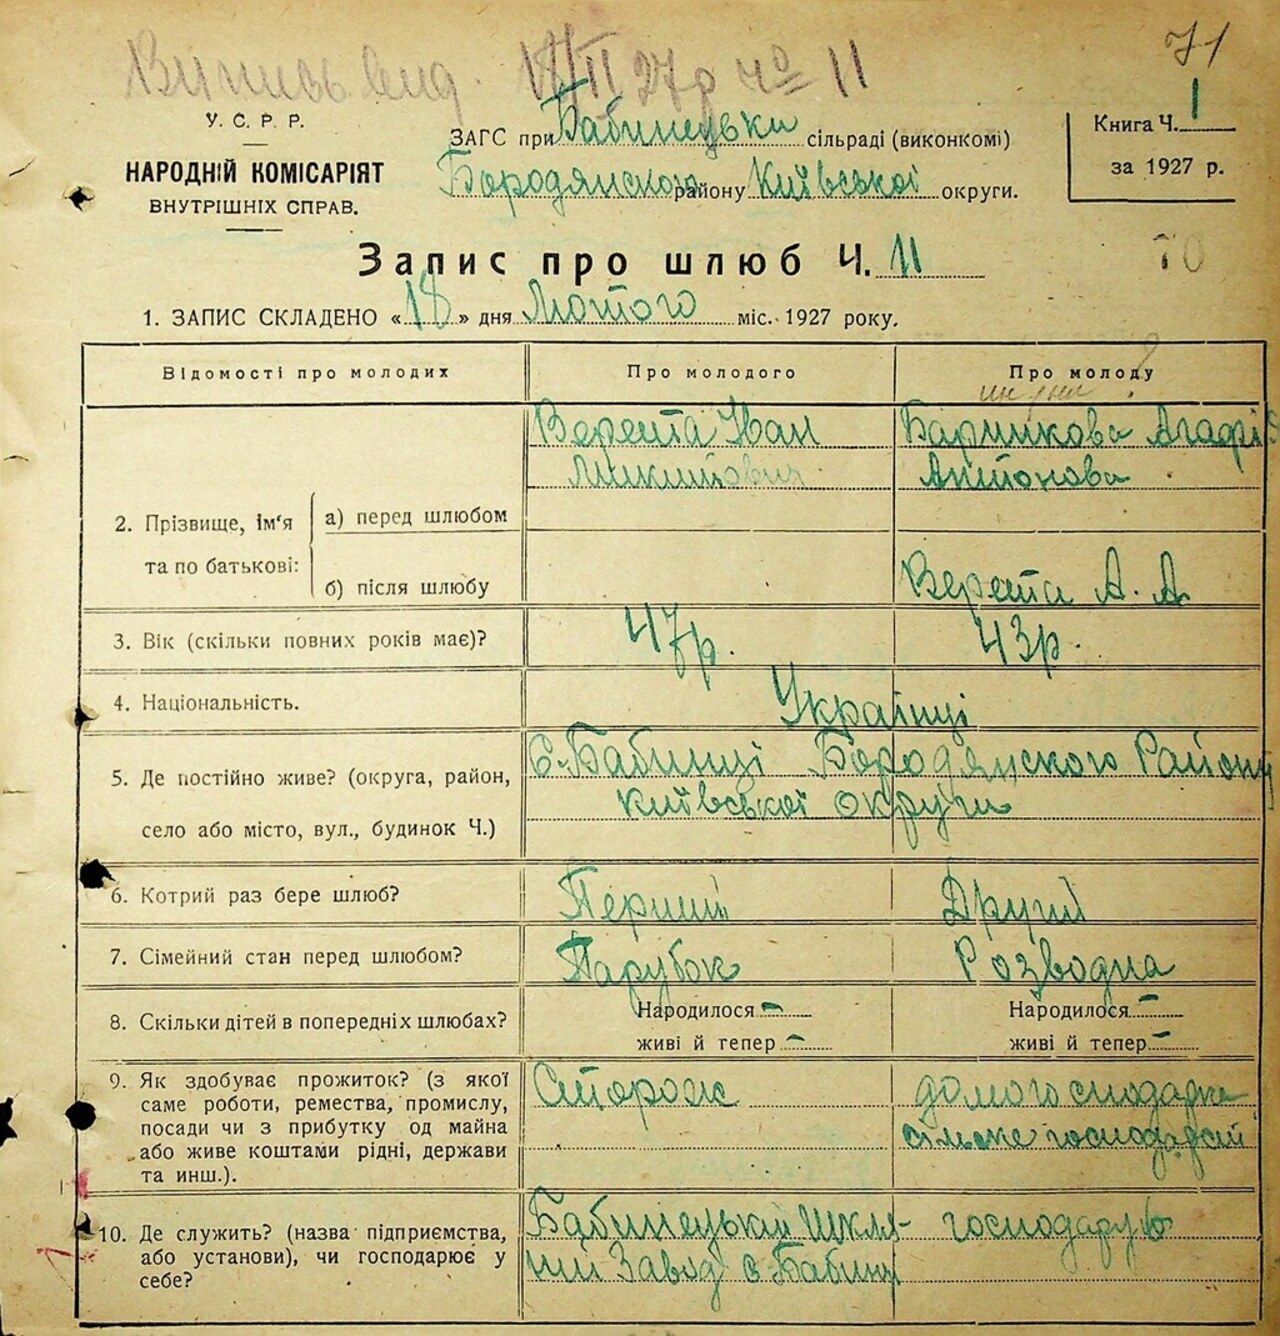 Випись вид. 18/II 27р чо 11
71
У. С. Р. Р.
НАРОДНІЙ КОМІСАРІЯТ
ВНУТРІШНІХ СПРАВ.
ЗАГС при Бабинецьки сільраді (виконкомі)
Бородянского району Київської округи.
Книга Ч. 1
за 1927 р.
Запис про шлюб Ч. 11
70
1. ЗАПИС СКЛАДЕНО «18» дня Лютого міс. 1927 року.
Відомості про молодих
Про молодого
Про молоду
2. Прізвище, ім'я
та по батькові:
а) перед шлюбом
Верета Іван
Микитович
Баринкова Агафія
Антонова
б) після шлюбу
Верета А. А
3. Вік (скільки повних років має)?
47р.
43р.
4. Національність.
Українці
5. Де постійно живе? (округа, район,
село або місто, вул., будинок Ч.)
С. Бабинці Бородянского Району
Київської округи
6. Котрий раз бере шлюб?
Перший
Другий
7. Сімейний стан перед шлюбом?
Парубок
Розводна
8. Скільки дітей в попередніх шлюбах?
Народилося -
живі й тепер -
Народилося -
живі й тепер -
9. Як здобуває прожиток? (з якої
саме роботи, ремества, промислу,
посади чи з прибутку од майна
або живе коштами рідні, держави
та инш.).
Сторож
домогосподарка
сільске
10. Де служить? (назва підприємства,
або установи), чи господарює у
себе?
Бабинецький Шкля-
ний Завод с. Бабинці
господарує